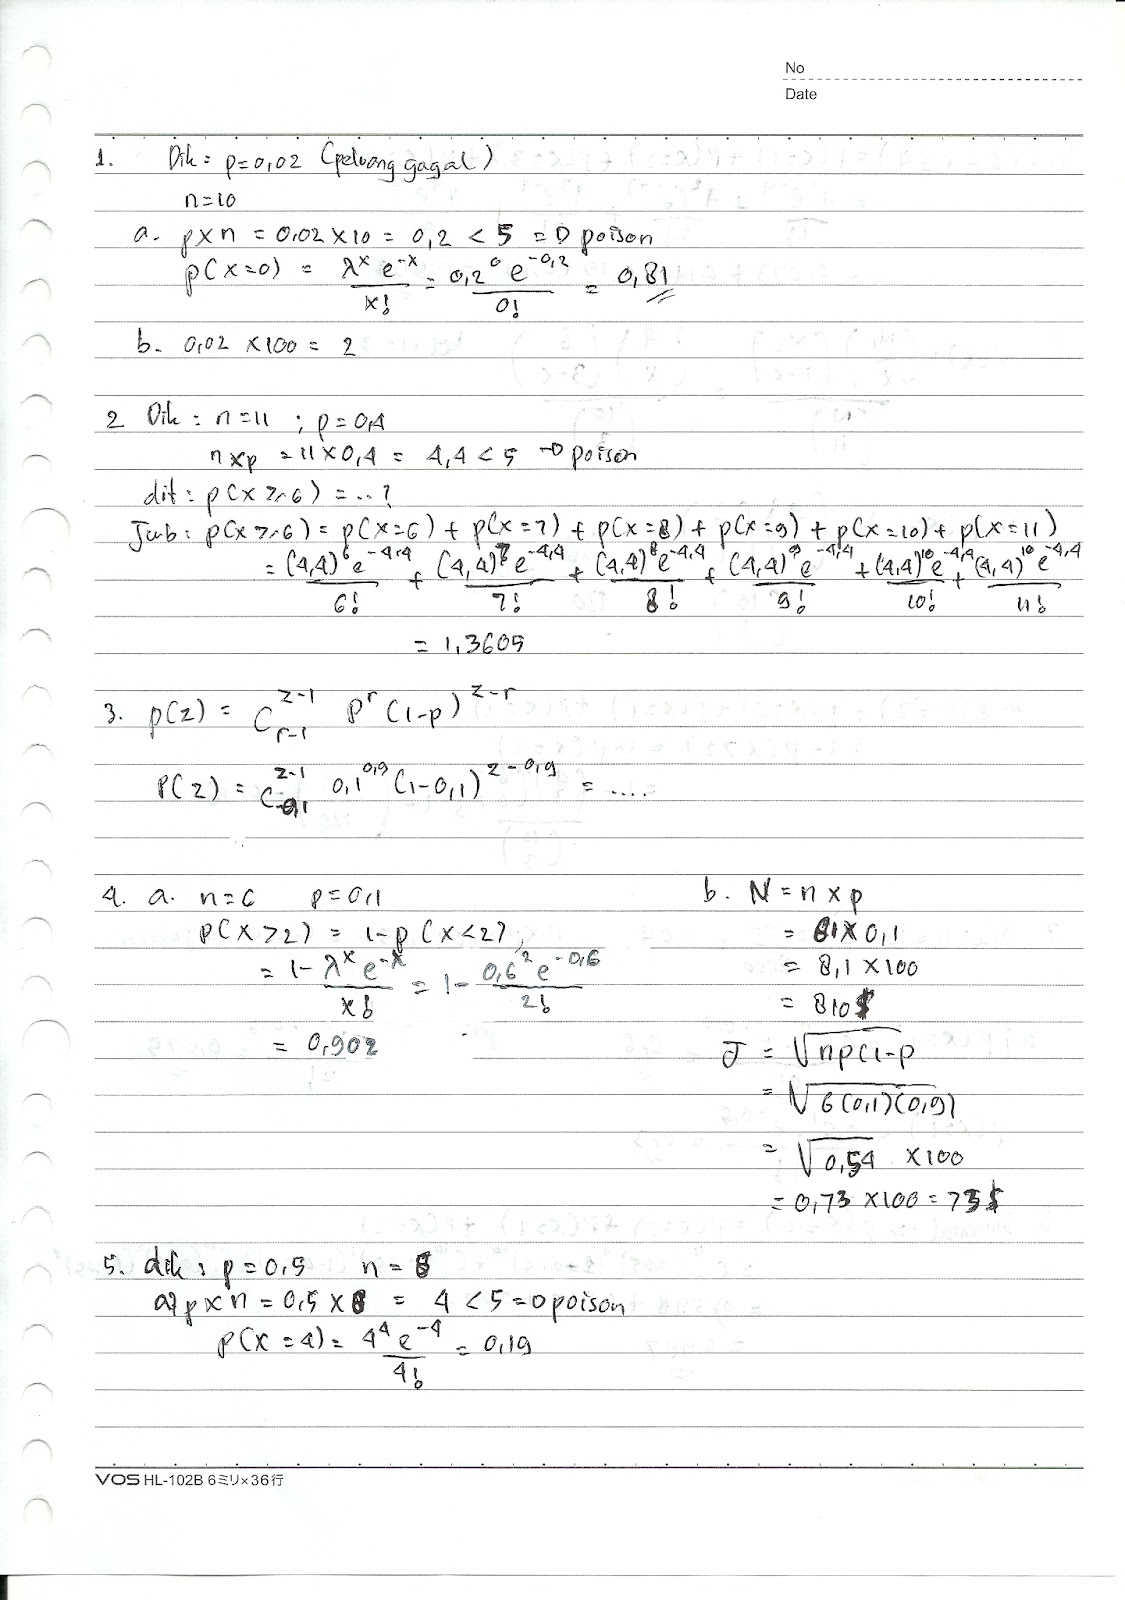 No
Date
1. Dik : p=0,02 (peluang gagal)
n=10
a. p×n = 0,02×10 = 0,2 < 5 =D poison
p(x=0) = λ^x e^-x / x! = 0,2^0 e^-0,2 / 0! = 0,81
b. 0,02 ×100 = 2
2 Dik : n=11 ; p=0,4
n×p = 11×0,4 = 4,4 < 5 →D poison
dit : p(x ≥ 6) = ..?
Jwb : p(x ≥ 6) = p(x=6) + p(x=7) + p(x=8) + p(x=9) + p(x=10) + p(x=11)
= (4,4)^6 e^-4,4 / 6! + (4,4)^7 e^-4,4 / 7! + (4,4)^8 e^-4,4 / 8! + (4,4)^9 e^-4,4 / 9! + (4,4)^10 e^-4,4 / 10! + (4,4)^10 e^-4,4 / 11!
= 1,3605
3. p(z) = C^z-1_r-1 p^r (1-p)^z-r
P(z) = C^z-1_-0,1 0,1^0,9 (1-0,1)^z-0,9 = ....
4. a. n=6 p=0,1
p(x>2) = 1-p(x<2)
= 1- λ^x e^-x / x! = 1- 0,6^2 e^-0,6 / 2!
= 0,902
b. N = n × p
= 81× 0,1
= 8,1 ×100
= 810$
J = √np(1-p
= √6(0,1)(0,9)
= √0,54 ×100
= 0,73 ×100 = 73$
5. dik : p=0,5 n = 8
a) p×n = 0,5 × 8 = 4 < 5 =D poison
p(x=4) = 4^4 e^-4 / 4! = 0,19
VOS HL-102B 6ミリ×36行